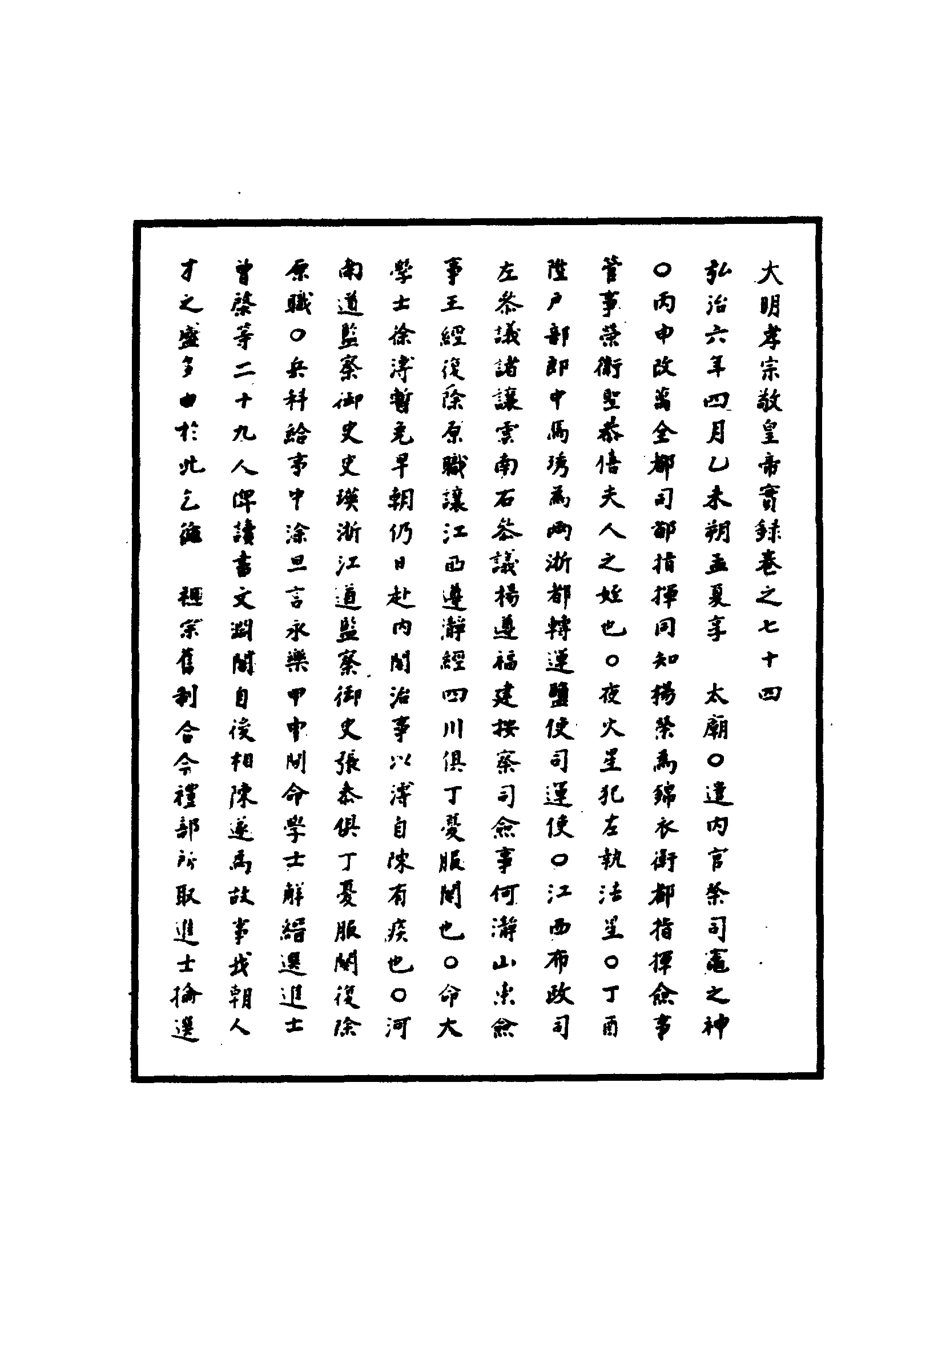 大明孝宗敬皇帝實錄卷之七十四
弘治六年四月乙未朔孟夏享　太廟○遣內官祭司竈之神
○丙申改萬全都司都指揮同知楊榮為錦衣衛都指揮僉事
管事榮衛聖恭僖夫人之姪也○夜火星犯左執法星○丁酉
陞戶部郎中馬琇為兩浙都轉運鹽使司運使○江西布政司
左參議諸讓雲南右參議楊遵福建按察司僉事何瀞山東僉
事王經復除原職讓江西遵瀞經四川俱丁憂服闋也○命大
學士徐溥暫免早朝仍日赴內閣治事以溥自陳有疾也○河
南道監察御史史瑛浙江道監察御史張泰俱丁憂服闋復除
原職○兵科給事中涂旦言永樂甲申間命學士解縉選進士
曾棨等二十九人俾讀書文淵閣自後相陳遂為故事我朝人
才之盛多由於此乞循　祖宗舊制合令禮部所取進士掄選